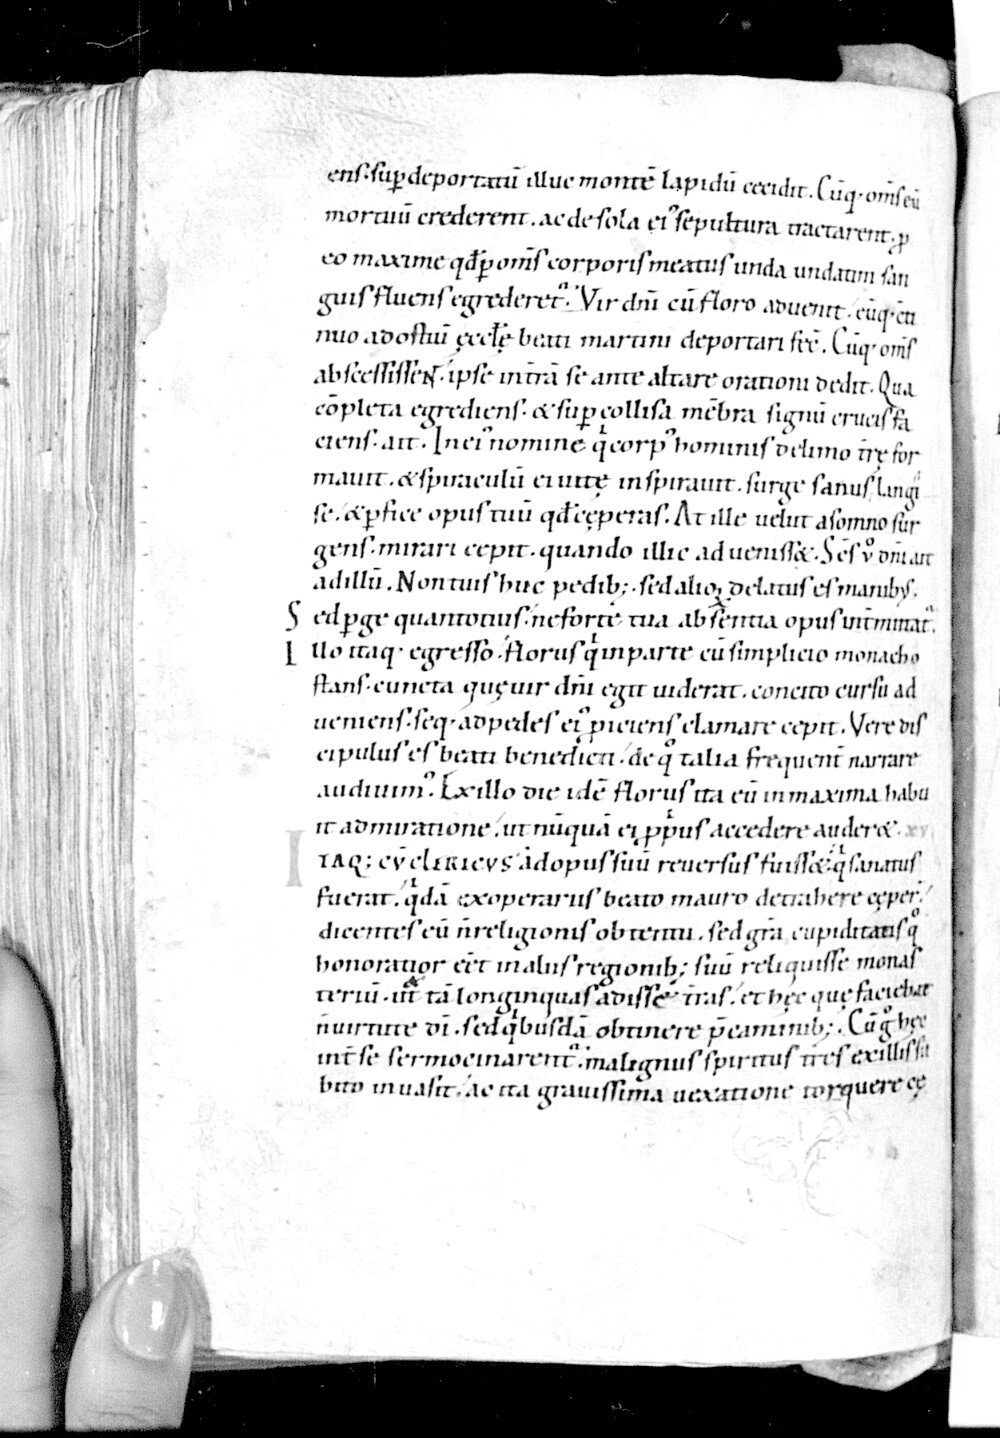 ens. sup̱ deportatū illuc montē lapidū cecidit. Cūq· om̄s eū
mortuū crederent. ac de sola eiꝰ sepultura tractarent. ꝓ
eo maxime qđ ꝑ om̄s corporis meatus unda undatim san
guis fluens egrederet᷑. Vir dn̄i cū floro advenit. eūq· ↄti
nuo ad ostiū ęccłę beati martini deportari fec̄. Cūq· om̄s
abscessissent. ipse intrā se ante altare orationi dedit. Qua
cōpleta egrediens. & sup̱ collisa mēbra signū crucis fa
ciens. ait. In eiꝰ nomine qͥ corpꝰ hominis de limo t̄rę for
mavit. & spiraculū ei vitę inspiravit. surge sanus
& ꝑfice opus tuū qđ cęperas. At ille velut a somno sur
gens. mirari cepit. quando illic advenisset. Sc̄s v̊ dn̄i ait
ad illū. Non tuis huc pedib; sed alioꝝ delatus es manibꝰ.
Sed ꝑge quantotius. ne forte tua absentia opus int̄minat᷑.
Illo itaq· egresso. florus qͥ in parte cū simplicio monacho
stans. cuncta quę vir dn̄i egit viderat. concito cursu ad
veniens. seq· ad pedes eiꝰ ꝓiciens clamare cepit. Vere dis
cipulus es beati benedicti. de qͦ talia frequent̄ narrare
audivimꝰ. Ex illo die idē florus ita eū in maxima habu
it admiratione. ut nūquā ei ꝓpͥus accedere auderet. XV
ITAQ; CV̄ CLERICVS ad opus suū reversus fuisset. qͥ sanatus
fuerat. qͥdā ex operariis beato mauro detrahere cęper̄.
dicentes eū n̄ religionis obtentu. sed gr̄a cupiditatis qͦ
honoratior eēt in alus regionib; suū reliquisse monas
teriū. & tā longinquas adisse t̄ras. et hęc quę faciebat
n̄ virtute dī. sed qͥbusdā obtinere p̄caminib;. Cūq· hęc
int̄ se sermocinarent᷑. malignus spiritus tres ex illis su
bito invasit. ac ita gravissima vexatione torquere cę